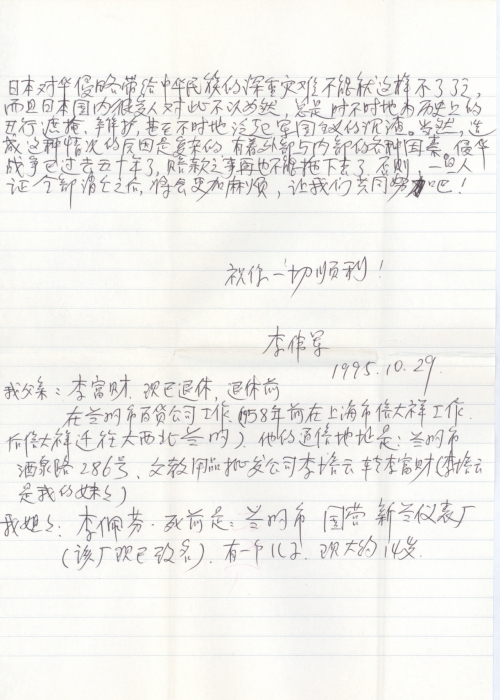 日本对华侵略带给中华民族的深重灾难不能就这样不了了之,
而且日本国内很多人对此不以为然,总是时不时地为历史上的
丑行遮掩、辩护,甚至不时地泛起军国主义的沉渣。当然,造
成这种情况的原因是复杂的,有着外部与内部的各种因素。侵华
战争已过去五十年了,赔款之事再也不能拖下去了,否则,一旦人
证全部消亡之后,将会更加麻烦,让我们共同努力吧!
祝你一切顺利!
李伟军
1995.10.29.
我父亲:李富财.现已退休,退休前
在兰州市百货公司工作.(58年前在上海市信大祥工作.
后信大祥迁往大西北兰州)他的通信地址是:兰州市
酒泉路286号、文教用品批发公司李培云转李富财(李培云
是我的妹妹)
我姐姐:李佩芬.死前是:兰州市 国营新兰仪表厂
(该厂现已改名).有一个儿子.现大约14岁.